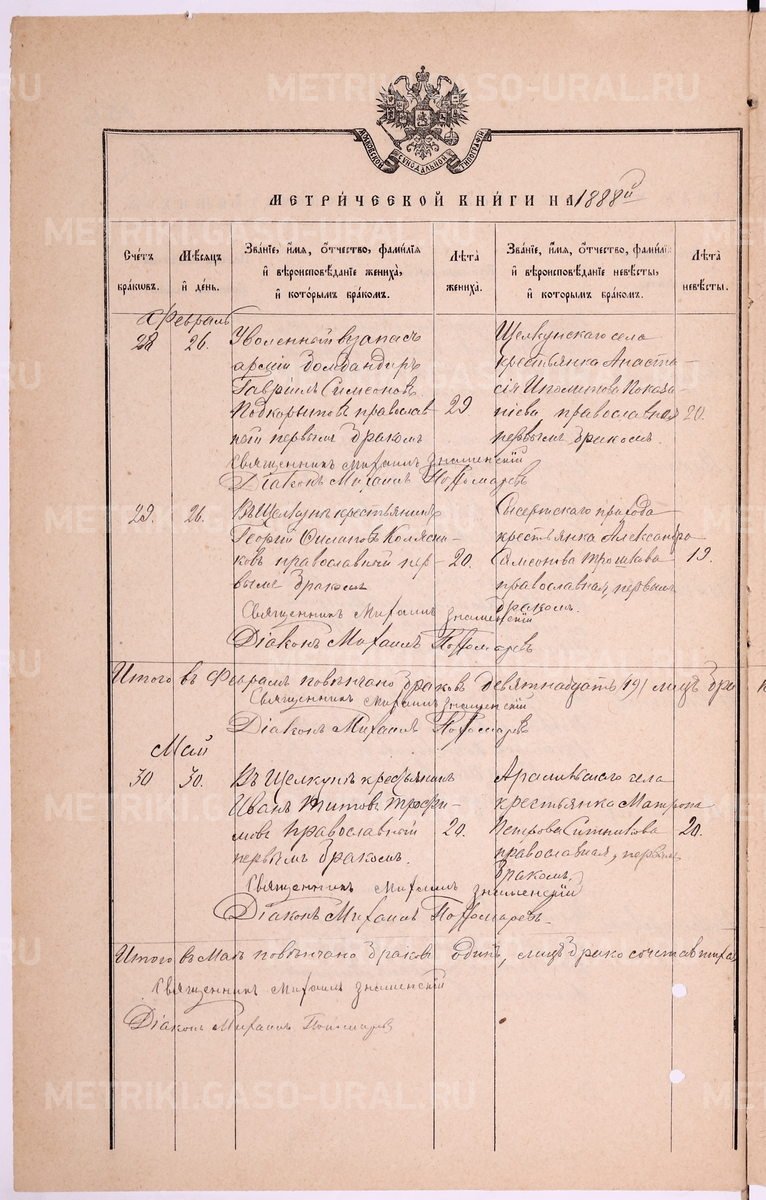 МОСКОВСКОЙ СѴНОДАЛЬНОЙ ТИПОГРАФІИ
МЕТРИ́ЧЕСКОЙ КНИ́ГИ НА 1888й
Счетъ браковъ.
Мѣсяцъ и день.
Зва́нїе, и́мя, о́тчество, фами́лїя и вѣроисповѣ́данїе жениха̀, и кото́рымъ бра́комъ.
Лѣта̀ жениха̀.
Зва́нїе, и́мя, о́тчество, фами́лїя и вѣроисповѣ́данїе невѣ́сты, и кото́рымъ бра́комъ.
Лѣта̀ невѣ́сты.
Февраль
28
26.
Уволенный въ запасъ
арміи бомбандиръ
Гавріилъ Симеоновъ
Подкорытовъ православ
ный первымъ бракомъ
29
Щелкунскаго села
крестьянка Анаста-
сія Ипполитова Показа
ніева православная
первымъ бракомъ.
20.
Священникъ Михаилъ Знаменскій
Діаконъ Михаилъ Пономаревъ
29.
26.
Въ Щелкунъ крестьянинъ
Георгій Колясни-
ковъ православный пер
вымъ бракомъ
20.
Сысертскаго прихода
крестьянка Александра
Самсонова Трошкова
православная, первымъ
бракомъ.
19.
Священникъ Михаилъ Знаменскій
Діаконъ Михаилъ Пономаревъ
Итого въ Февралѣ повѣнчано браковъ девятнадцать 19, лицъ бра
Священникъ Михаилъ Знаменскій
Діаконъ Михаилъ Пономаревъ
Май
30
30.
Въ Щелкунъ крестьянинъ
Иванъ Титовъ Трофи-
мовъ православный
первымъ бракомъ.
20.
Арамильскаго села
крестьянка Матрона
Петрова Ситникова
православная, первым
бракомъ.
20.
Священникъ Михаилъ Знаменскій
Діаконъ Михаилъ Пономаревъ
Итого въ Маѣ повѣнчано браковъ одинъ, лицъ
Священникъ Михаилъ Знаменскій
Діаконъ Михаилъ Пономаревъ
METRIKI.GASO-URAL.RU